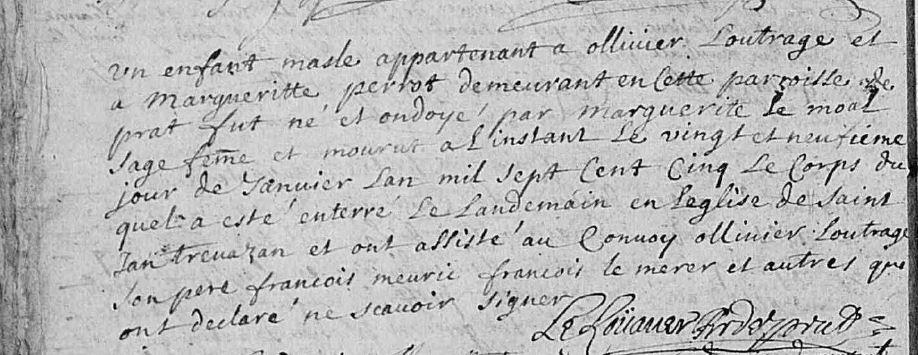 un enfant masle appartenant a ollivier Loutrage et
a Margueritte perrot demeurant en Cette parroisse de
prat fut né et ondoyé par marguerite Le moal
sage feme et mourut a L'instant Le vingt et neufieme
jour de Janvier Lan mil sept Cent Cinq Le Corps du
quel a esté enterré Le Landemain en Leglise de Saint
Jan trevazan et ont assisté au Convoy ollivier Loutrage
son pere francois meuric francois le merer et autres que
ont declaré ne scavoir signer